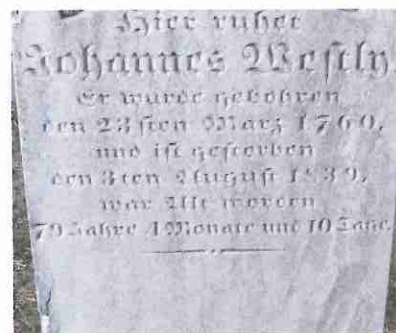 Hier ruhet
Johannes Westly,
Er wurde gebohren
den 23sten Marz 1760,
und ist gestorben
den 3ten August 1839,
war Alt worden
79 Jahre 4 Monate und 10 Tage.